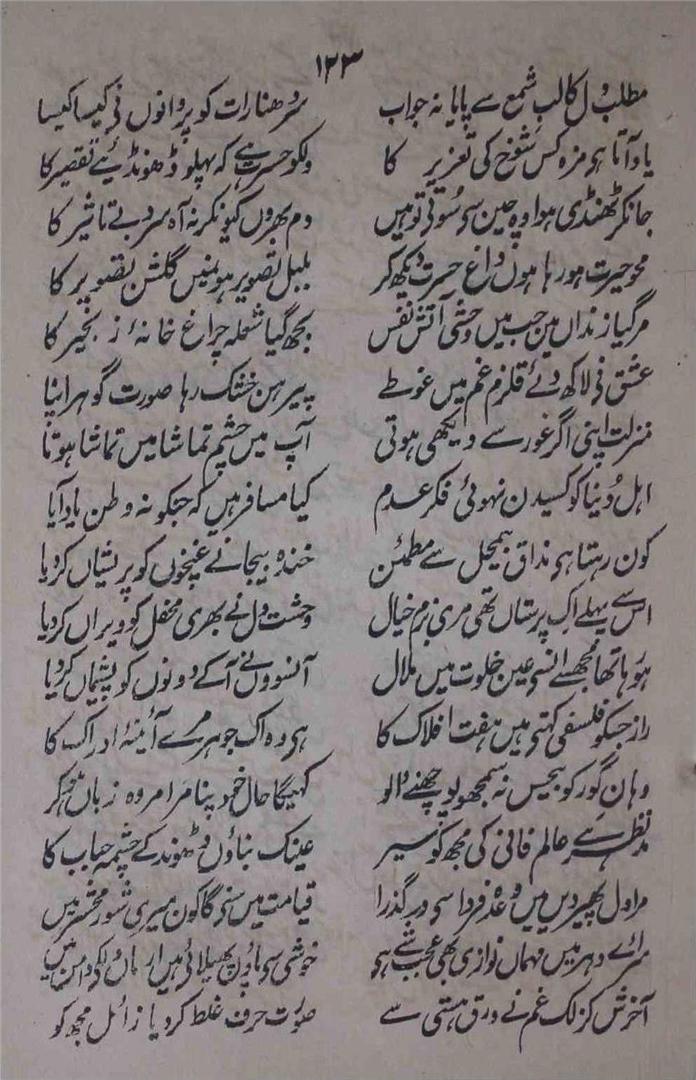 ۱۲۳
مطلب دل کا لب شمع سے پایا نہ جواب سر دھنا رات کو پروانوں نے کیسا کیسا
یاد آتا ہو مزہ کس شوخ کی تعزیر کا دلکو حسرت ہے کہ پہلو ڈھونڈیئے تقصیر کا
جانکر ٹھنڈی ہوا وہ چین سی سوتی تو ہیں دم بھروں کیونکر نہ آہ سرد بے تاثیر کا
محو حیرت ہو رہا ہوں داغ حسرت دیکھ کر بلبل تصویر ہوں میں گلشن تصویر کا
مر گیا زنداں میں جب میں وحشی آتش نفس بجھ گیا شعلہ چراغ خانۂ زنجیر کا
عشق نی لاکھ دئے قلزم غم میں غوطے پیرہن خشک رہا صورت گوہر اپنا
منزلت اپنی اگر غور سے دیکھی ہوتی آپ میں چشم تماشا میں تماشا ہوتا
اہل دنیا کو کسیدن نہوئی فکر عدم کیا مسافر ہیں کہ جنکو نہ وطن یاد آیا
کون رہتا ہی مذاق بیمحل سے مطمئن خندہ بیجا نے غنچوں کو پریشاں کر دیا
اس سے پہلے اک پرستاں تھی مری بزم خیال وحشت دل نے بھری محفل کو ویراں کر دیا
ہو رہا تھا مجھسے انسی عین خلوت میں ملال آنسوؤں نے آ کے دونوں کو پشیماں کر دیا
راز جسکو فلسفی کہتی ہیں ہفت افلاک کا ہی وہ اک جوہر مرے آئینۂ ادراک کا
وہان گور کو بیحس نہ سمجھو پوچھنے والو کہیگا حال خود اپنا مرا مروہ زباں ہو کر
مد نظر ہے عالم فانی کی مجھ کو سیر عینک بناؤں ڈھونڈ کے چشمہ حباب کا
مرا دل پھیر دیں میں وعدۂ فردا سی در گذرا قیامت میں سنی گا کون میری شور محشر میں
سرائے دہر میں مہماں نوازی بھی عجب شے ہی خوشی سی پاؤں پھیلائی ہیں ارماں دامن میں
آخرش کزلک غم نے ورق ہستی سے صورت حرف غلط کر دیا زائل مجھ کو